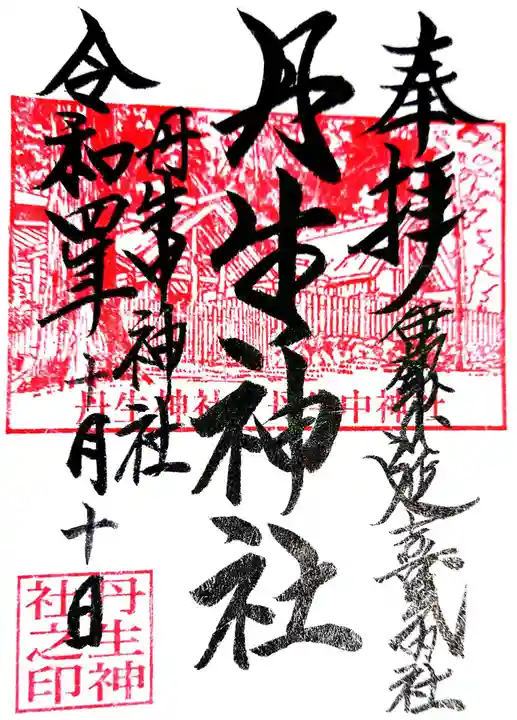 奉拝
伊勢國延喜式内社
丹生神社
丹生中神社
令和四年十一月十日
丹生神社 丹生中神社
丹生神
社之印